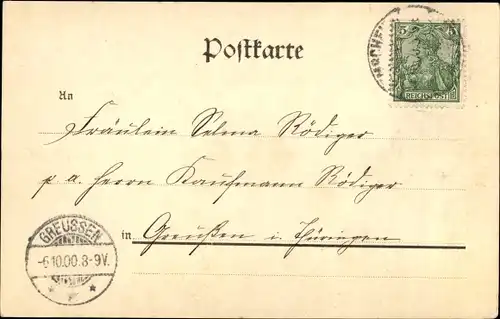 Postkarte
5
REICHSPOST
An
Fräulein Selma Rödiger
p. a. Herrn Kaufmann Rödiger
in Greußen i. Thüringen
GREUSSEN
-6.10.00.8-9V.
* * *